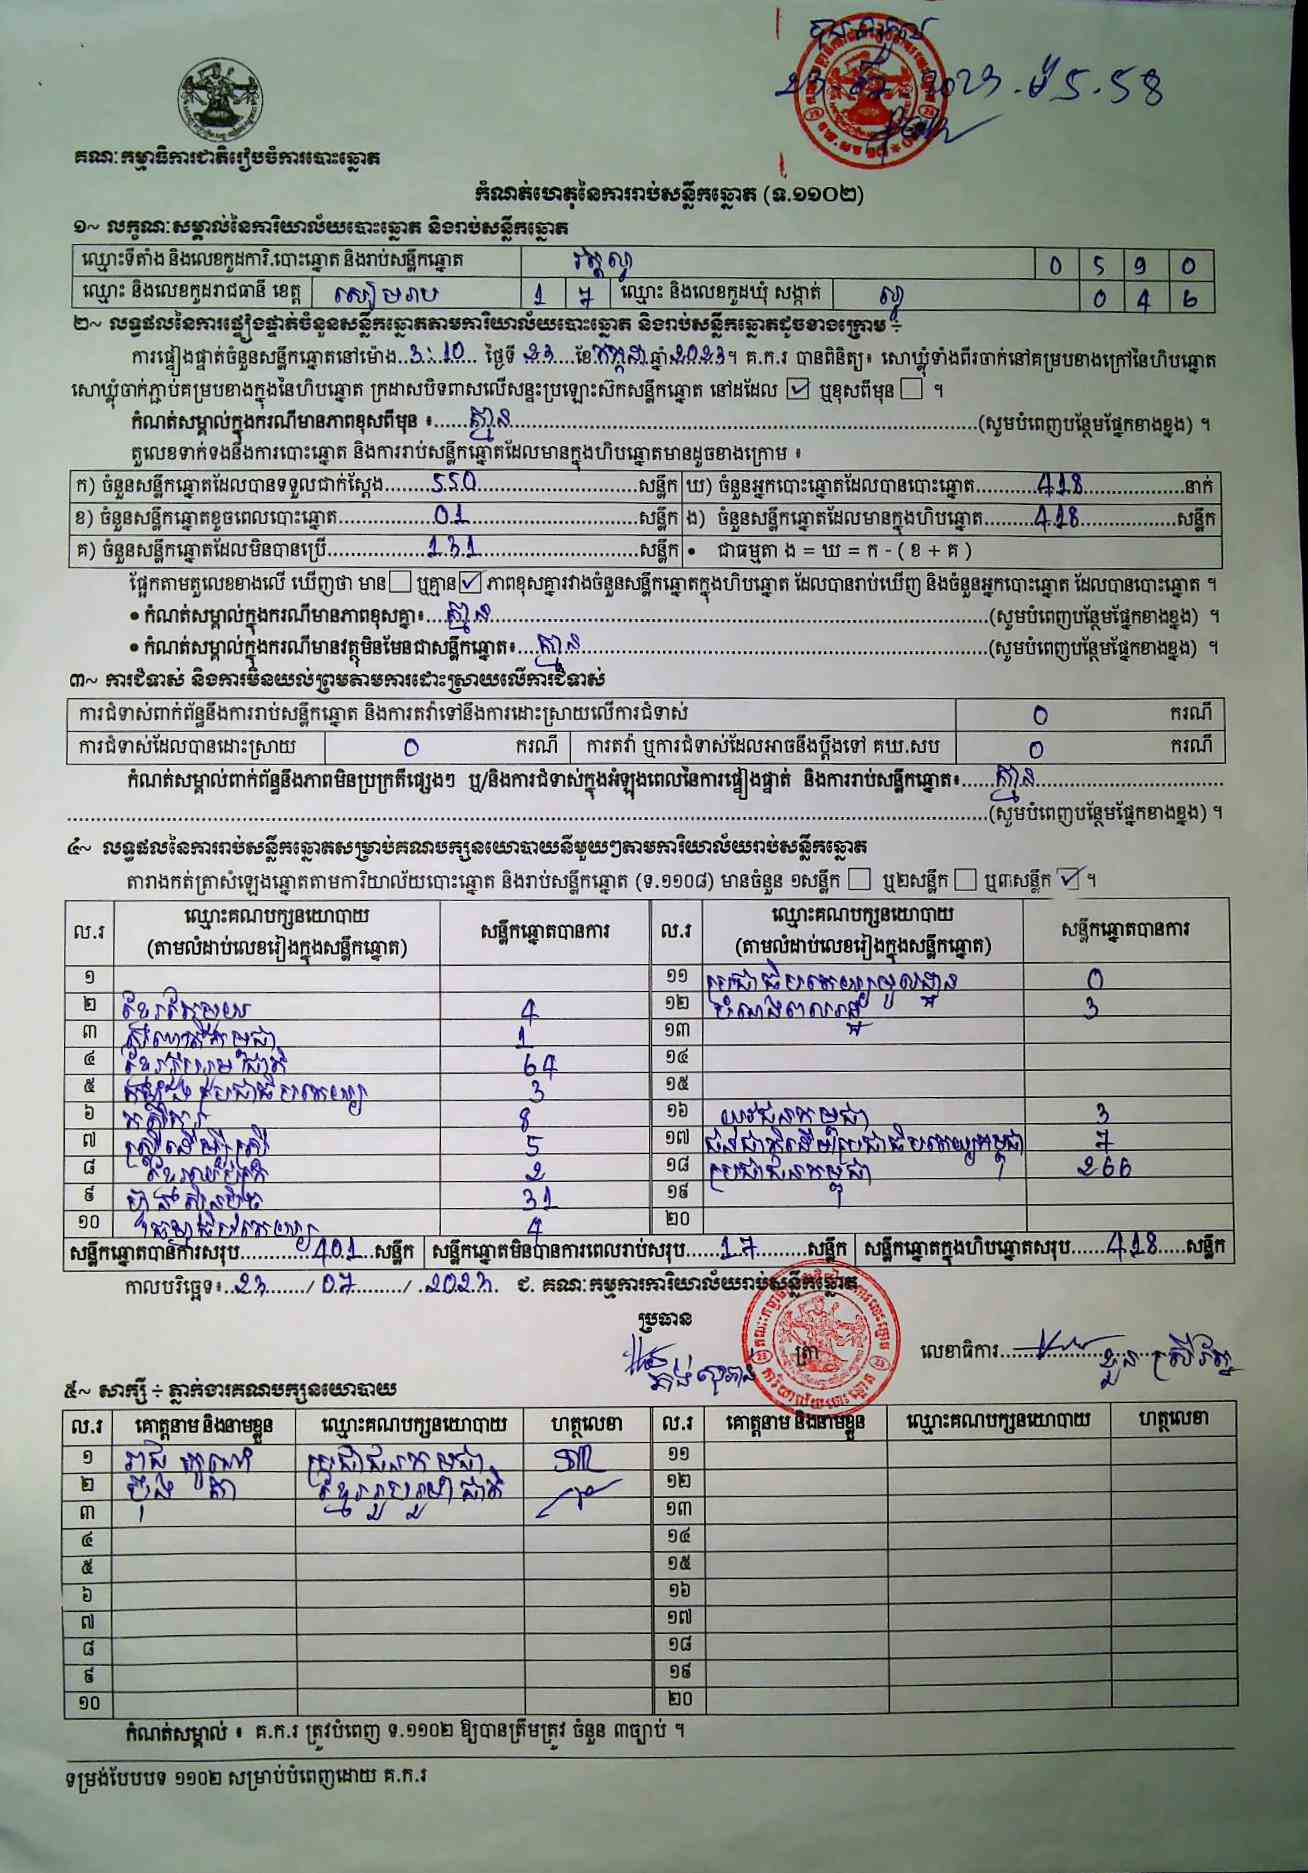 23 2023 ម៉ 5.58
គណៈកម្មាធិការជាតិរៀបចំការបោះឆ្នោត
កំណត់ហេតុនៃការរាប់សន្លឹកឆ្នោត (ទ.១១០២)
១~ លក្ខណៈសម្គាល់នៃការិយាល័យបោះឆ្នោត និងរាប់សន្លឹកឆ្នោត
ឈ្មោះទីតាំង និងលេខកូដការិ.បោះឆ្នោត និងរាប់សន្លឹកឆ្នោត 0 5 9 0
ឈ្មោះ និងលេខកូដរាជធានី ខេត្ត សៀមរាប 1 7 ឈ្មោះ និងលេខកូដឃុំ សង្កាត់ 0 4 6
២~ លទ្ធផលនៃការផ្ទៀងផ្ទាត់ចំនួនសន្លឹកឆ្នោតតាមការិយាល័យបោះឆ្នោត និងរាប់សន្លឹកឆ្នោតដូចខាងក្រោម ÷
ការផ្ទៀងផ្ទាត់ចំនួនសន្លឹកឆ្នោតនៅម៉ោង..3:10.... ថ្ងៃទី .23....ខែ.កក្កដា.ឆ្នាំ.2023។ គ.ក.រ បានពិនិត្យ៖ សោឃ្លុំទាំងពីរចាក់នៅគម្របខាងក្រៅនៃហិបឆ្នោត
សោឃ្លុំចាក់ភ្ជាប់គម្របខាងក្នុងនៃហិបឆ្នោត ក្រដាសបិទពាសលើសន្ទះប្រឡោះស៊កសន្លឹកឆ្នោត នៅដដែល ☑ ឬខុសពីមុន ☐ ។
កំណត់សម្គាល់ក្នុងករណីមានភាពខុសពីមុន ៖......គ្មាន......(សូមបំពេញបន្ថែមផ្នែកខាងខ្នង) ។
តួលេខទាក់ទងនឹងការបោះឆ្នោត និងការរាប់សន្លឹកឆ្នោតដែលមានក្នុងហិបឆ្នោតមានដូចខាងក្រោម ៖
ក) ចំនួនសន្លឹកឆ្នោតដែលបានទទួលជាក់ស្តែង........550........សន្លឹក ឃ) ចំនួនអ្នកបោះឆ្នោតដែលបានបោះឆ្នោត........418........នាក់
ខ) ចំនួនសន្លឹកឆ្នោតខូចពេលបោះឆ្នោត........01........សន្លឹក ង) ចំនួនសន្លឹកឆ្នោតដែលមានក្នុងហិបឆ្នោត........418........សន្លឹក
គ) ចំនួនសន្លឹកឆ្នោតដែលមិនបានប្រើ........131........សន្លឹក • ជាធម្មតា ង = ឃ = ក - ( ខ + គ )
ផ្អែកតាមតួលេខខាងលើ ឃើញថា មាន ☐ ឬគ្មាន ☑ ភាពខុសគ្នារវាងចំនួនសន្លឹកឆ្នោតក្នុងហិបឆ្នោត ដែលបានរាប់ឃើញ និងចំនួនអ្នកបោះឆ្នោត ដែលបានបោះឆ្នោត ។
• កំណត់សម្គាល់ក្នុងករណីមានភាពខុសគ្នា៖....គ្មាន........(សូមបំពេញបន្ថែមផ្នែកខាងខ្នង) ។
• កំណត់សម្គាល់ក្នុងករណីមានវត្ថុមិនមែនជាសន្លឹកឆ្នោត៖....គ្មាន........(សូមបំពេញបន្ថែមផ្នែកខាងខ្នង) ។
៣~ ការជំទាស់ និងការមិនយល់ព្រមតាមការដោះស្រាយលើការជំទាស់
ការជំទាស់ពាក់ព័ន្ធនឹងការរាប់សន្លឹកឆ្នោត និងការតវ៉ាទៅនឹងការដោះស្រាយលើការជំទាស់ 0 ករណី
ការជំទាស់ដែលបានដោះស្រាយ 0 ករណី ការតវ៉ា ឬការជំទាស់ដែលអាចនឹងប្តឹងទៅ គឃ.សប 0 ករណី
កំណត់សម្គាល់ពាក់ព័ន្ធនឹងភាពមិនប្រក្រតីផ្សេងៗ ឬ/និងការជំទាស់ក្នុងអំឡុងពេលនៃការផ្ទៀងផ្ទាត់ និងការរាប់សន្លឹកឆ្នោត៖......គ្មាន......
......(សូមបំពេញបន្ថែមផ្នែកខាងខ្នង) ។
៤~ លទ្ធផលនៃការរាប់សន្លឹកឆ្នោតសម្រាប់គណបក្សនយោបាយនីមួយៗតាមការិយាល័យរាប់សន្លឹកឆ្នោត
តារាងកត់ត្រាសំឡេងឆ្នោតតាមការិយាល័យបោះឆ្នោត និងរាប់សន្លឹកឆ្នោត (ទ.១១០៨) មានចំនួន ១សន្លឹក ☐ ឬ២សន្លឹក ☐ ឬ៣សន្លឹក ☑ ។
ល.រ ឈ្មោះគណបក្សនយោបាយ (តាមលំដាប់លេខរៀងក្នុងសន្លឹកឆ្នោត) សន្លឹកឆ្នោតបានការ ល.រ ឈ្មោះគណបក្សនយោបាយ (តាមលំដាប់លេខរៀងក្នុងសន្លឹកឆ្នោត) សន្លឹកឆ្នោតបានការ
១ ១១ ប្រជាធិបតេយ្យមូលដ្ឋាន 0
២ 4 ១២ 3
៣ 1 ១៣
៤ ខ្មែររួបរួមជាតិ 64 ១៤
៥ សំបុកឃ្មុំ 3 ១៥
៦ កសិករ 8 ១៦ យុវជនកម្ពុជា 3
៧ ស្ត្រីដើម្បីស្ត្រី 5 ១៧ ជនជាតិដើមប្រជាធិបតេយ្យកម្ពុជា 7
៨ 2 ១៨ ប្រជាជនកម្ពុជា 266
៩ ហ៊្វុនស៊ិនប៉ិច 31 ១៩
១០ ធម្មាធិបតេយ្យ 4 ២០
សន្លឹកឆ្នោតបានការសរុប........401...សន្លឹក សន្លឹកឆ្នោតមិនបានការពេលរាប់សរុប......17.......សន្លឹក សន្លឹកឆ្នោតក្នុងហិបឆ្នោតសរុប......418.....សន្លឹក
កាលបរិច្ឆេទ៖..23....../ 07....../ .2023. ជ. គណៈកម្មការការិយាល័យរាប់សន្លឹកឆ្នោត
ប្រធាន
ត្រា លេខាធិការ..........
៥~ សាក្សី ÷ ភ្នាក់ងារគណបក្សនយោបាយ
ល.រ គោត្តនាម និងនាមខ្លួន ឈ្មោះគណបក្សនយោបាយ ហត្ថលេខា ល.រ គោត្តនាម និងនាមខ្លួន ឈ្មោះគណបក្សនយោបាយ ហត្ថលេខា
១ ប្រជាជនកម្ពុជា ១១
២ ខ្មែររួបរួមជាតិ ១២
៣ ១៣
៤ ១៤
៥ ១៥
៦ ១៦
៧ ១៧
៨ ១៨
៩ ១៩
១០ ២០
កំណត់សម្គាល់ ៖ គ.ក.រ ត្រូវបំពេញ ទ.១១០២ ឱ្យបានត្រឹមត្រូវ ចំនួន ៣ច្បាប់ ។
ទម្រង់បែបបទ ១១០២ សម្រាប់បំពេញដោយ គ.ក.រ